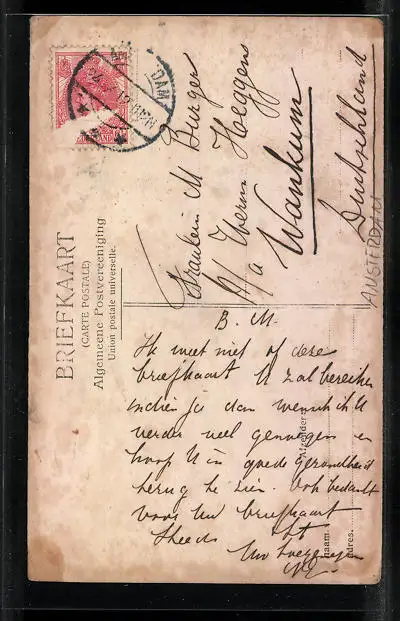 BRIEFKAART
(CARTE POSTALE)
Algemeene Postvereeniging
Union postale universelle.
Fräulein M Burger
Heggens
Wankum
Deutschland
AMSTERDAM
B. M.
Ik weet niet of deze
briefkaart U zal bereiken
indien ja dan wensch ik U
verder veel genoegen en
hoop U in goede gezondheid
terug te zien. Ook bedankt
voor Uw briefkaart
Steeds
Uw
Afzender:
naam.
adres.